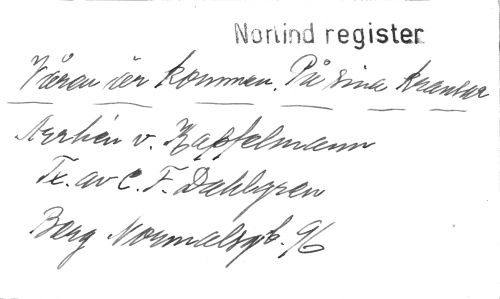 Norlind register
Våren är kommen. På sina kransar
Ayrhén v. Kapfelmann
Tx. av C. F. Dahlgren
Berg Normalsgb. 96